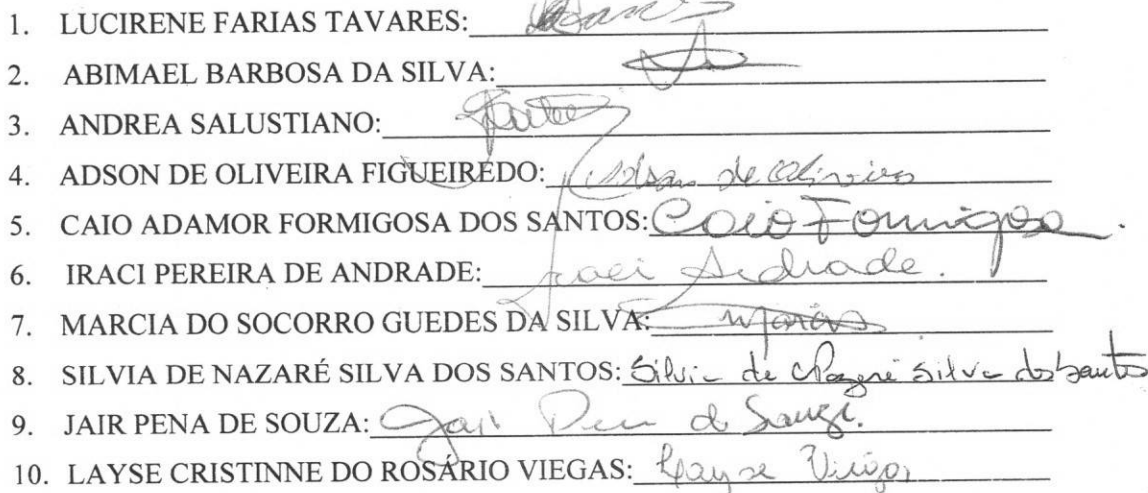 1. LUCIRENE FARIAS TAVARES:
2. ABIMAEL BARBOSA DA SILVA:
3. ANDREA SALUSTIANO:
4. ADSON DE OLIVEIRA FIGUEIREDO: Adson de Oliveira
5. CAIO ADAMOR FORMIGOSA DOS SANTOS: Caio Formigosa.
6. IRACI PEREIRA DE ANDRADE: Iraci Andrade.
7. MARCIA DO SOCORRO GUEDES DA SILVA:
8. SILVIA DE NAZARÉ SILVA DOS SANTOS: Silvia de Nazaré Silva dos Santos
9. JAIR PENA DE SOUZA: Jair Pena de Souza.
10. LAYSE CRISTINNE DO ROSÁRIO VIEGAS: Layse Viegas